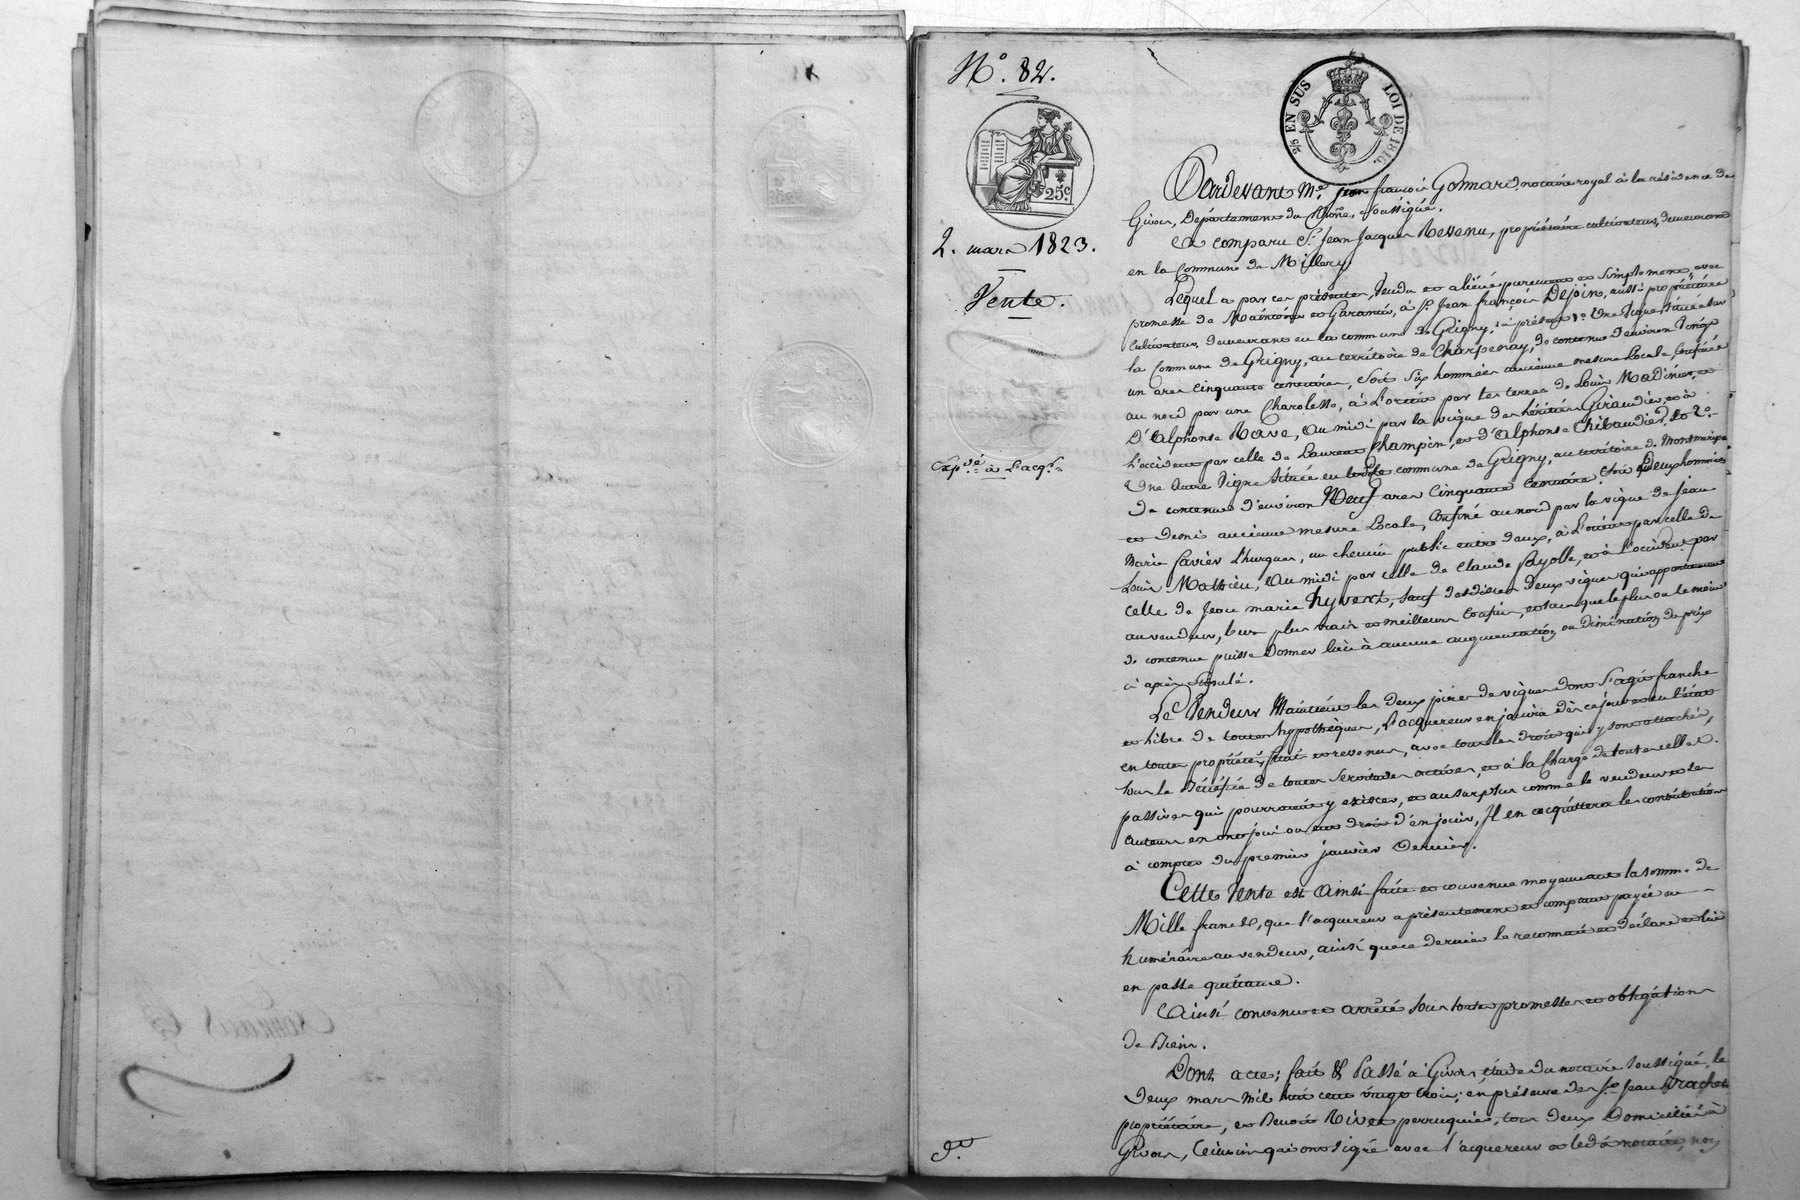 N.° 82.
25 EN SUS LOI DE 1816.
25c.
2. mars 1823.
Vente.
Exp.dé à l'acq.r
Pardevant M.e Jean françois Gonnard notaire royal à la résidence de
Givors, Département du Rhône, soussigné.
A comparu S.r Jean Jacques Revenu, propriétaire cultivateur, demeurant
en la commune de Millery.
Lequel a par ces présentes, vendu et aliéné purement et simplement, avec
promesse de maintenue et garantie, à S.r Jean françois Dejoin, aussi propriétaire
cultivateur, demeurant en la commune de Grigny, à présent 1.° Une vigne située sur
la commune de Grigny, au territoire de Charpenay, de contenue d'environ vingt
un ares cinquante centiares, soit six hommées ancienne mesure Locale, confinée
au nord par une Charolesse, à l'orient par les terres de Louis Madinier, et
D'Alphonse Rave, au midi par la vigne des héritiers Giraudier, et à
l'occident par celle de Laurent Champin, et d'Alphonse Chibaudier, et 2.°
Une autre vigne située en ladite commune de Grigny, au territoire de Montmeripe
de contenue d'environ Neuf ares cinquante centiares, soit deux hommées
et demie ancienne mesure Locale, confiné au nord par la vigne de Jean
Marie Xavier Thurgues, un chemin public entre deux, à l'orient par celle de
Louis Mathieu, au midi par celle de Claude Fayolle, et à l'occident par
celle de Jean marie hyvert, sauf desdites deux vignes qui appartiennent
au vendeur, leurs plus vrais et meilleurs confins, et sans que le plus ou le moins
de contenue puisse donner lieu à aucune augmentation ou diminution du prix
ci après stipulé.
Le Vendeur Maintient les deux pièces de vignes dont s'agit franche
et libre de toutes hypothèques, L'acquereur en jouira dès ce jour et en l'état
en toute propriété, fruit et revenus, avec tous les droits qui y sont attachés,
sous le Bénéfice de toutes servitudes actives, et à la charge de toutes celles
passives qui pourroient y exister, et au surplus comme le vendeur et les
auteurs en ont joui ou eu droit d'en jouir, Il en acquittera les contributions
à compter du premier janvier dernier.
Cette Vente est ainsi faite et convenue moyennant la somme de
Mille francs, que l'acquereur a présentement et comptant payée en
Numéraire au vendeur, ainsi que ce dernier le reconnait et déclare et lui
en passe quittance.
Ainsi convenu et arrêté sous toutes promesses et obligations
de Biens.
Dont acte; fait & Passé à Givors, étude du notaire soussigné, le
deux mars mil huit cent vingt trois; en présence des S.rs Jean Brachet
propriétaire, et Benoit Rivet perruquier, tous deux Domiciliés à
Givors, témoins qui ont signé avec l'acquereur et led.t notaire, non